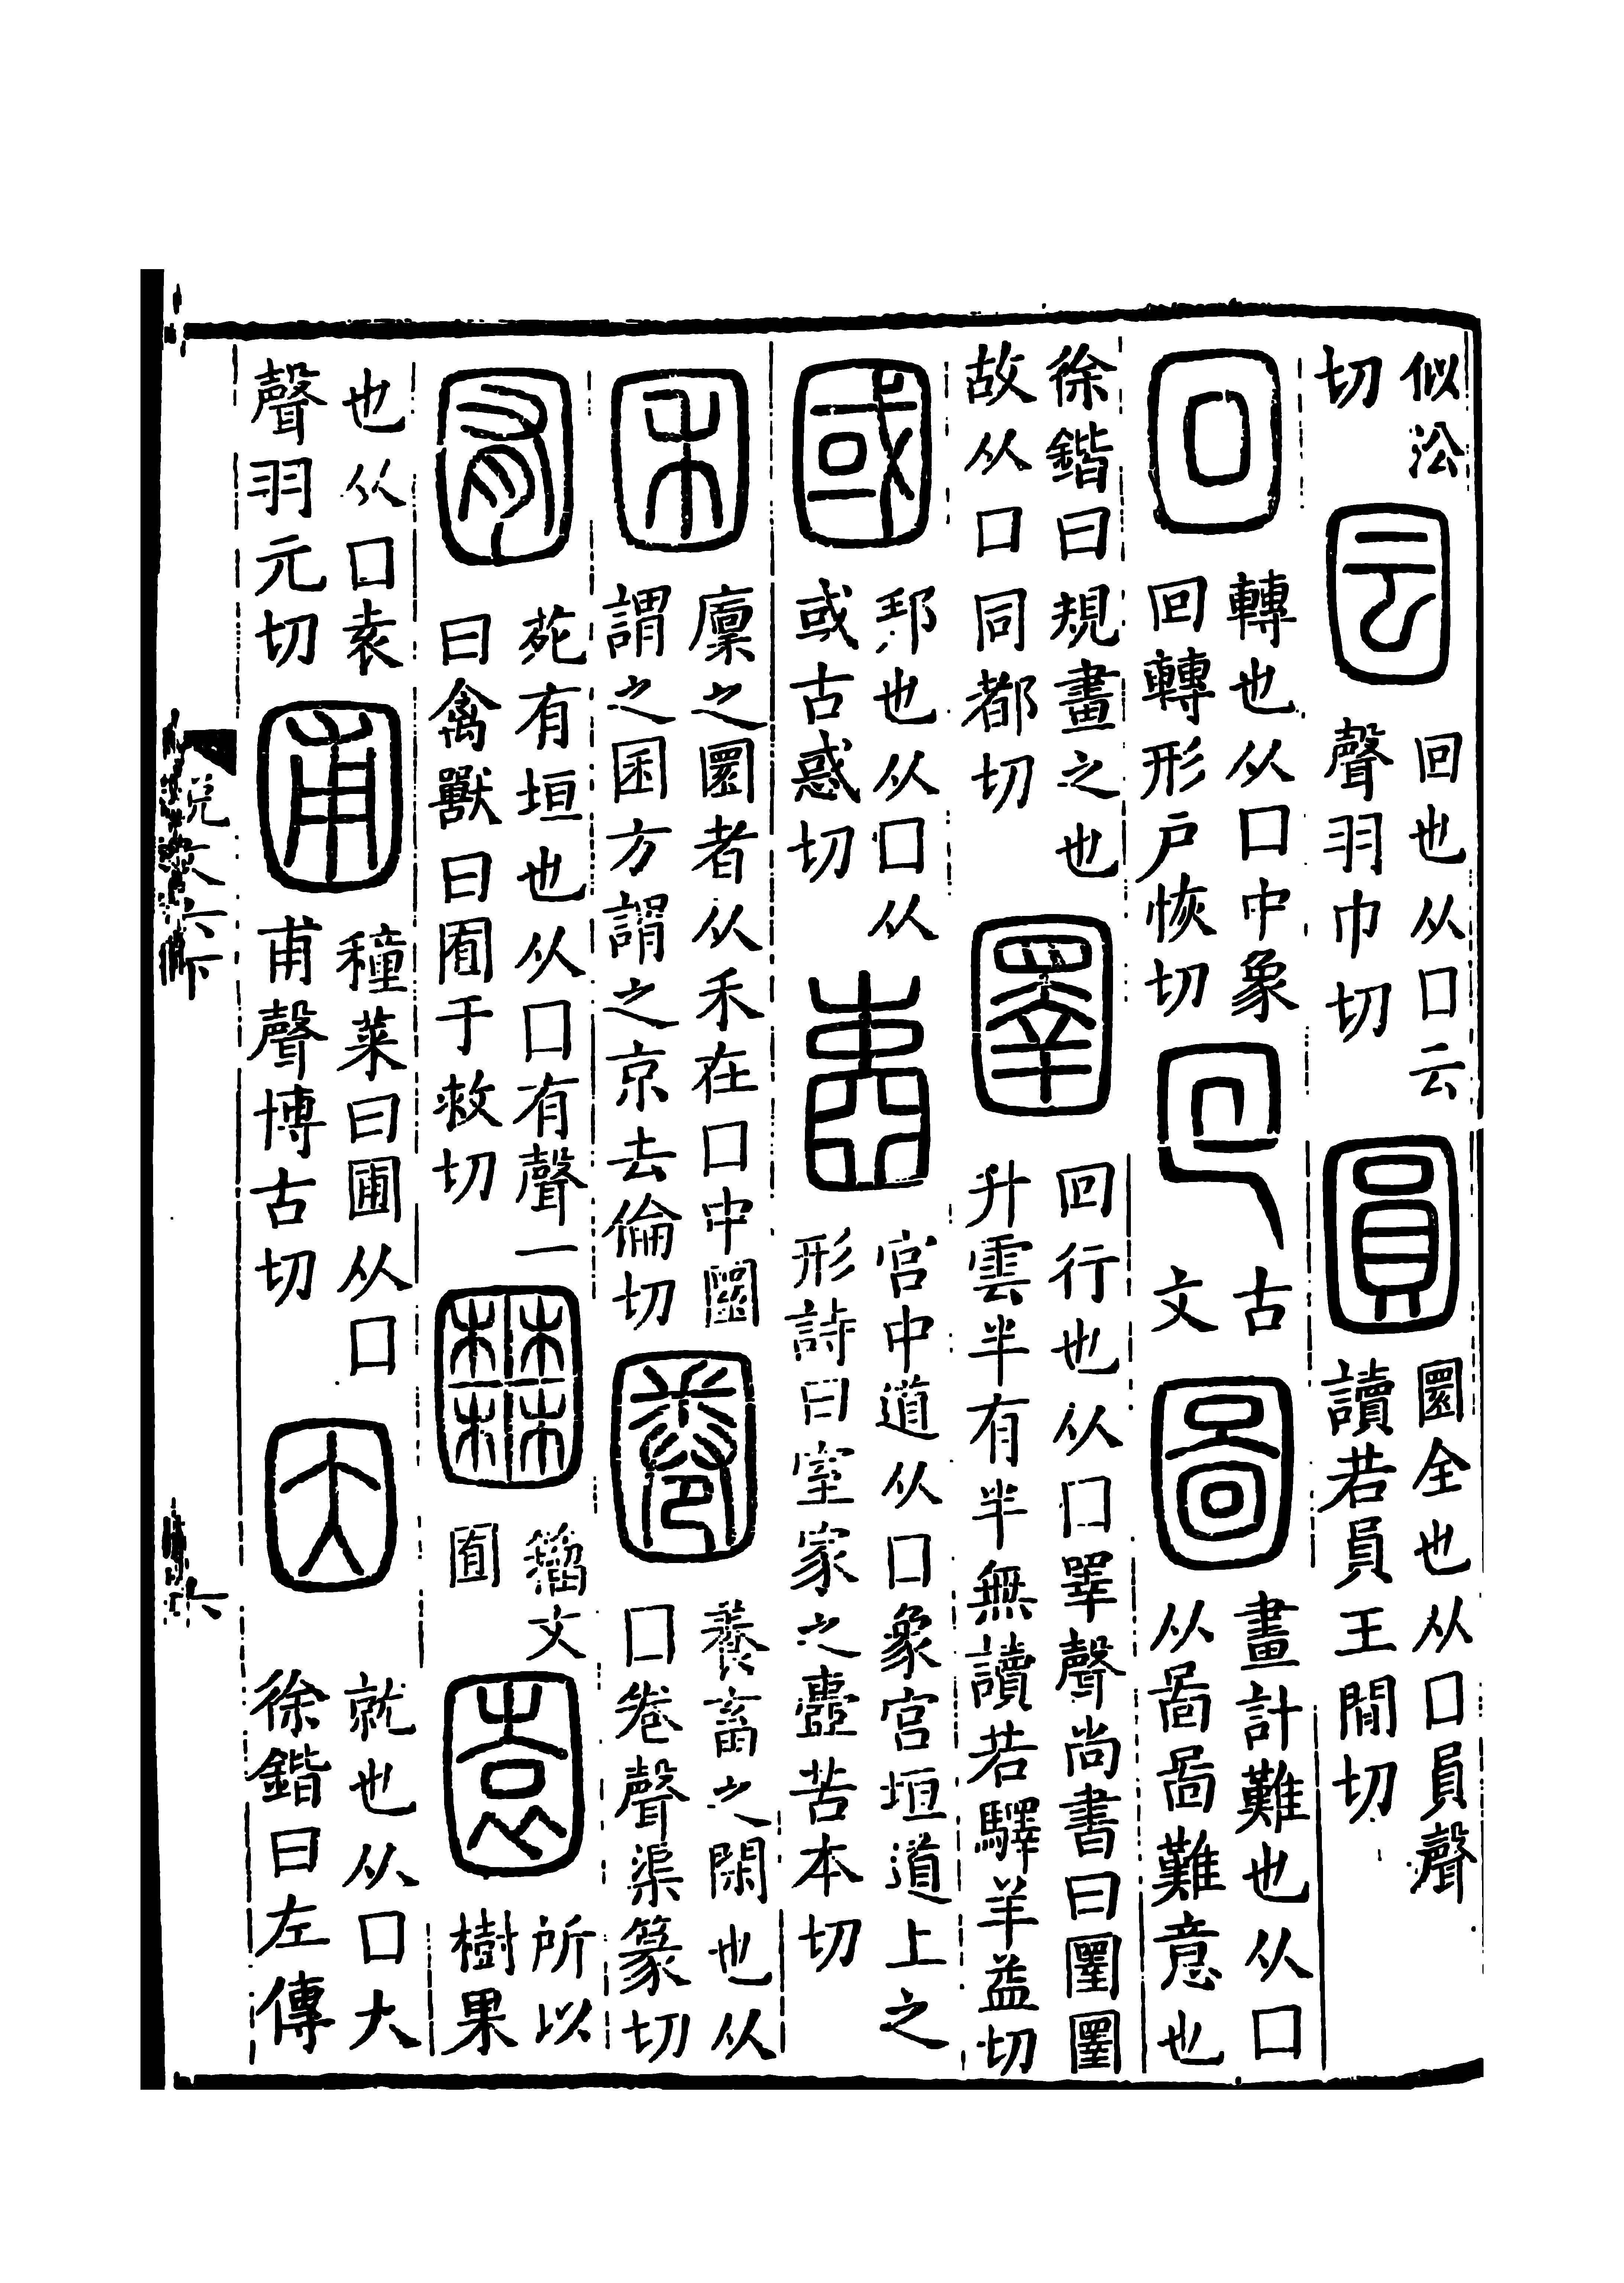 似沿切 囩 回也从囗云聲羽巾切 圓 圜全也从囗員聲讀若員王問切
回 轉也从囗中象回轉形戶恢切 古文 圖 畫計難也从囗从啚啚難意也
徐鍇曰規畫之也故从囗同都切 圛 回行也从囗睪聲尚書曰圛圛升雲半有半無讀若驛羊益切
國 邦也从囗从或古惑切 壼 宮中道从囗象宮垣道上之形詩曰室家之壼苦本切
囷 廩之圜者从禾在囗中圜謂之囷方謂之京去倫切 圈 養畜之閑也从囗卷聲渠篆切
囿 苑有垣也从囗有聲一曰禽獸曰囿于救切 籀文囿 園 所以樹果
也从囗袁聲羽元切 圃 種菜曰圃从囗甫聲博古切 因 就也从囗大徐鍇曰左傳
說文六下
六